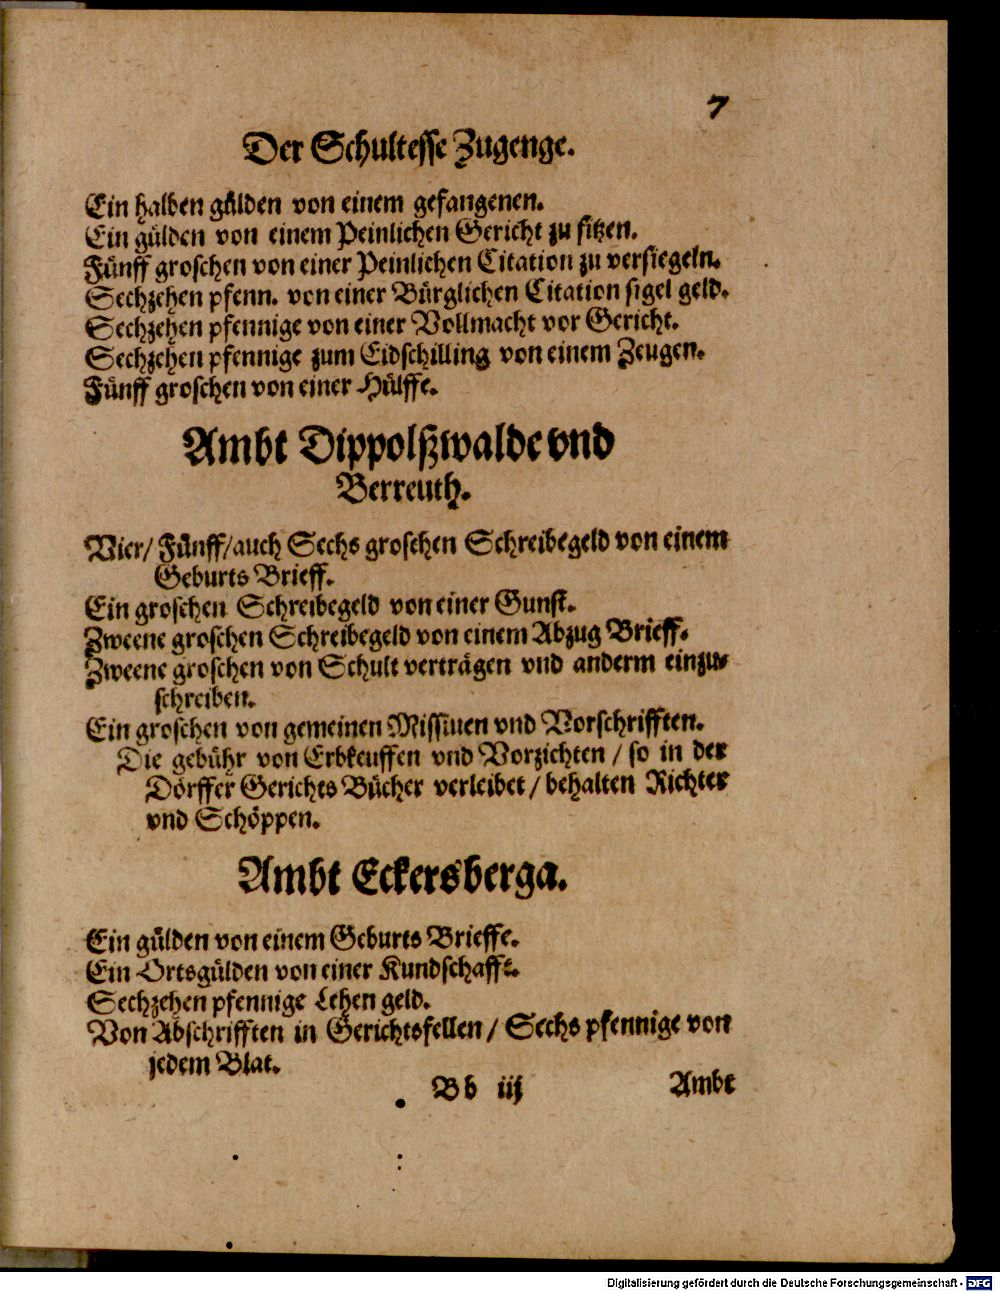 7
Der Schultesse Zugenge.
Ein halben gülden von einem gefangenen.
Ein gülden von einem Peinlichen Gericht zu sitzen.
Fünff groschen von einer Peinlichen Citation zu versiegeln.
Sechzehen pfenn. von einer Bürglichen Citation sigel geld.
Sechzehen pfennige von einer Vollmacht vor Gericht.
Sechzehen pfennige zum Eidschilling von einem Zeugen.
Fünff groschen von einer Hülffe.
Ambt Dippolßwalde vnd
Berreuth.
Vier/ Fünff/ auch Sechs groschen Schreibegeld von einem
Geburts Brieff.
Ein groschen Schreibegeld von einer Gunst.
Zweene groschen Schreibegeld von einem Abzug Brieff.
Zweene groschen von Schult verträgen vnd anderm einzu-
schreiben.
Ein groschen von gemeinen Missiuen vnd Vorschrifften.
Die gebühr von Erbkeuffen vnd Vorzichten / so in der
Dörffer Gerichts Bücher verleibet / behalten Richter
vnd Schöppen.
Ambt Eckersberga.
Ein gülden von einem Geburts Brieffe.
Ein Ortsgülden von einer Kundschafft.
Sechzehen pfennige Lehen geld.
Von Abschrifften in Gerichtsfellen / Sechs pfennige von
jedem Blat.
Bb iij Ambt
Digitalisierung gefördert durch die Deutsche Forschungsgemeinschaft - DFG